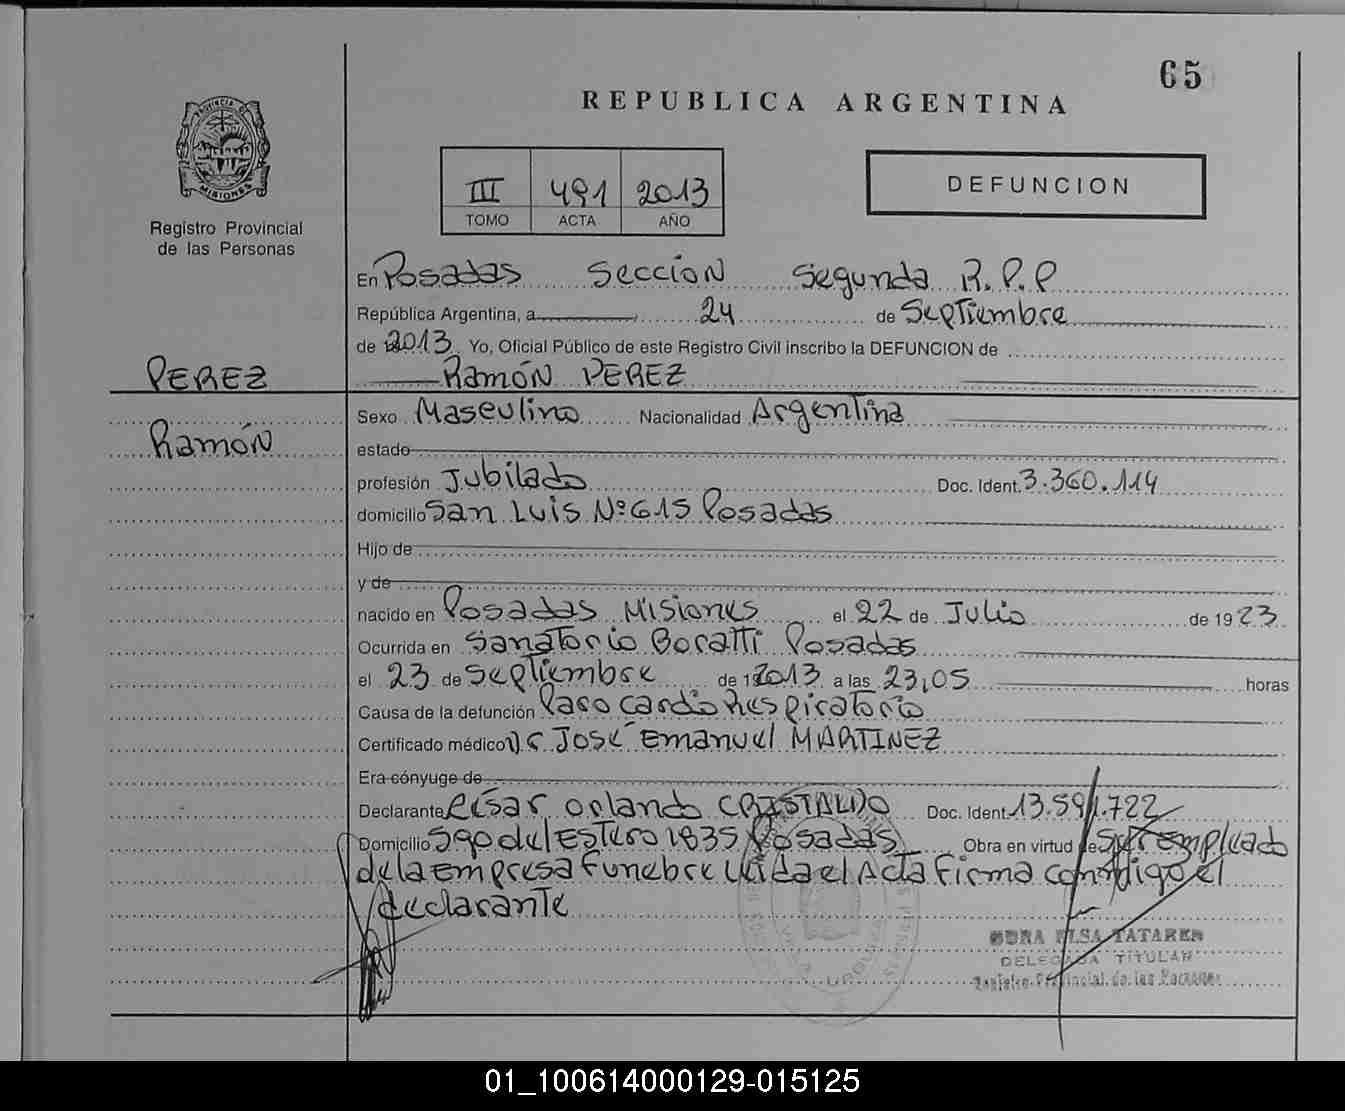 65
REPUBLICA ARGENTINA
PROVINCIA DE
MISIONES
Registro Provincial
de las Personas
III 491 2013
TOMO ACTA AÑO
DEFUNCION
En Posadas Sección Segunda R.P.P
República Argentina, a 24 de Septiembre
de 2013 Yo, Oficial Público de este Registro Civil inscribo la DEFUNCION de
PEREZ
Ramón PEREZ
Ramón
Sexo Masculino Nacionalidad Argentina
estado
profesión Jubilado Doc. Ident. 3.360.114
domicilio San Luis Nº 615 Posadas
Hijo de
y de
nacido en Posadas Misiones el 22 de Julio de 1923
Ocurrida en Sanatorio Boratti Posadas
el 23 de Septiembre de 2013 a las 23,05 horas
Causa de la defunción Paro cardio Respiratorio
Certificado médico Dr José Emanuel MARTINEZ
Era cónyuge de
Declarante César Orlando CRISTALDO Doc. Ident. 13.591.722
Domicilio Sgo del Estero 1835 Posadas Obra en virtud de Ser empleado
de la Empresa Funebre leida el Acta Firma conmigo el
declarante
ELSA TATAREN
DELEGADA TITULAR
Registro Provincial de las Personas
01_100614000129-015125